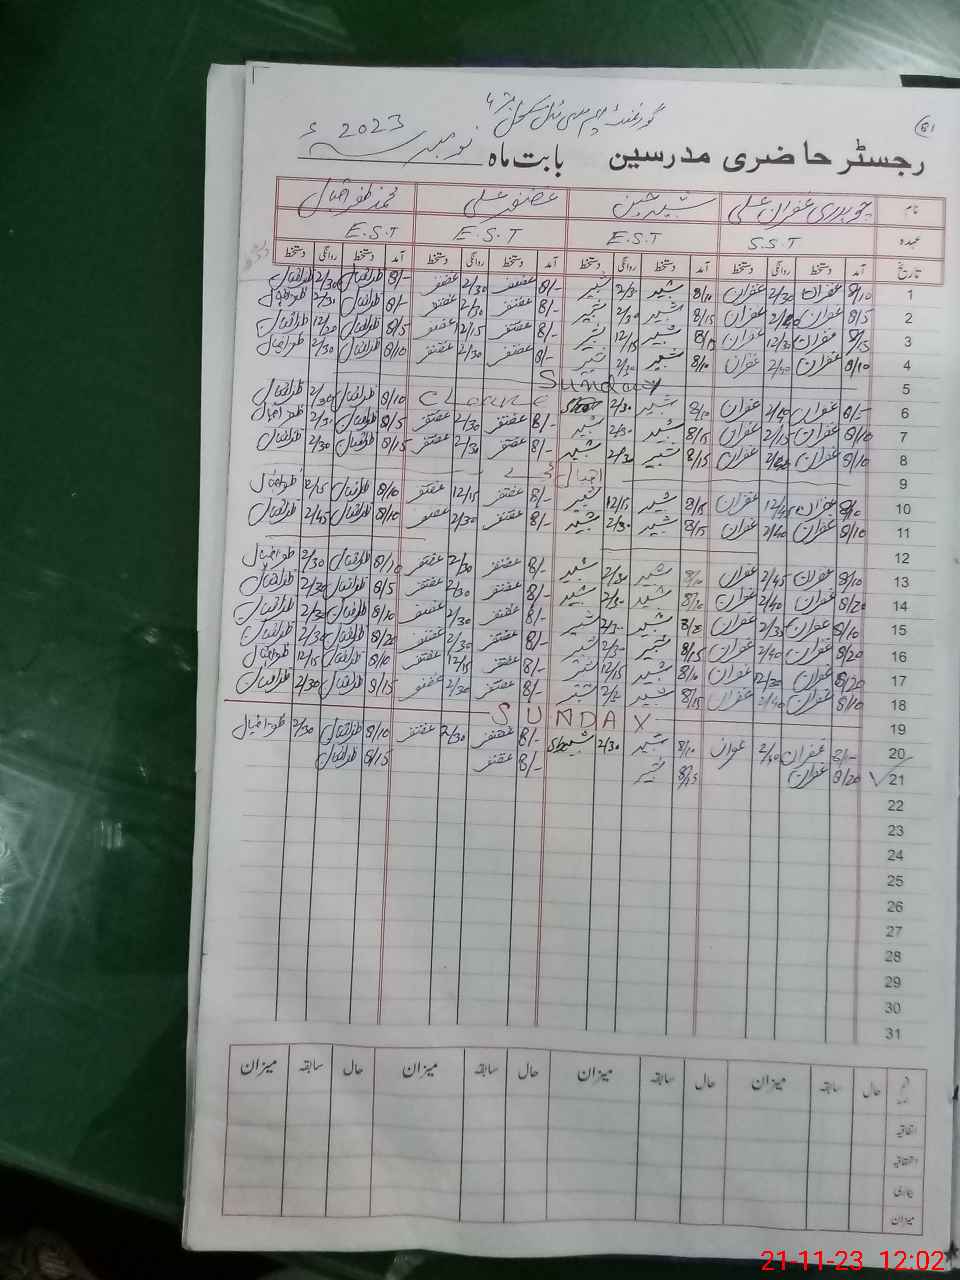 گورنمنٹ سکول
رجسٹر حاضری مدرسین بابت ماہ نومبر 2023ء
نام چوہدری غفران علی شبیر حسین غضنفر علی محمد ظفر اقبال
عہدہ S.S.T E.S.T E.S.T E.S.T
تاریخ آمد دستخط روانگی دستخط آمد دستخط روانگی دستخط آمد دستخط روانگی دستخط آمد دستخط روانگی دستخط
1 8/10 غفران 2/30 غفران 8/10 شبیر 2/30 شبیر 8/- غضنفر 2/30 غضنفر 8/- ظفر اقبال 2/30 ظفر اقبال
2 8/5 غفران غفران 8/15 شبیر 2/30 شبیر 8/- غضنفر 2/30 غضنفر 8/- ظفر اقبال ظفر اقبال
3 8/15 غفران 12/30 غفران 8/10 شبیر 12/15 شبیر 8/- غضنفر 12/15 غضنفر 8/5 ظفر اقبال 12/20 ظفر اقبال
4 8/10 غفران غفران 8/10 شبیر 2/30 شبیر 8/- غضنفر 2/30 غضنفر 8/10 ظفر اقبال 2/30 ظفر اقبال
5 Sunday
6 غفران 2/40 غفران 8/10 شبیر 2/30 8/- غضنفر غضنفر 8/10 ظفر اقبال 2/30 ظفر اقبال
7 8/10 غفران 2/15 غفران 8/15 شبیر 2/30 شبیر 8/- غضنفر 2/30 غضنفر 8/5 ظفر اقبال 2/30 ظفر اقبال
8 8/10 غفران غفران 8/15 شبیر 2/30 شبیر 8/- غضنفر 2/30 غضنفر 8/15 ظفر اقبال 2/30 ظفر اقبال
9 اقبال ڈے
10 8/10 غفران 12/45 غفران 8/15 شبیر 12/15 شبیر 8/- غضنفر 12/15 غضنفر 8/10 ظفر اقبال 12/15 ظفر اقبال
11 8/10 غفران 2/40 غفران 8/15 شبیر 2/30 شبیر 8/- غضنفر 2/30 غضنفر 8/10 ظفر اقبال 2/45 ظفر اقبال
12
13 8/10 غفران 2/45 غفران 8/10 شبیر 2/30 شبیر 8/- غضنفر 2/30 غضنفر 8/10 ظفر اقبال 2/30 ظفر اقبال
14 8/20 غفران 2/40 غفران شبیر 2/30 شبیر 8/- غضنفر 2/30 غضنفر 8/5 ظفر اقبال 2/30 ظفر اقبال
15 8/10 غفران 2/35 غفران شبیر 2/30 شبیر 8/- غضنفر 2/30 غضنفر 8/10 ظفر اقبال 2/30 ظفر اقبال
16 8/20 غفران 2/40 غفران 8/15 شبیر 2/30 شبیر 8/- غضنفر 2/30 غضنفر 8/20 ظفر اقبال 2/30 ظفر اقبال
17 8/20 غفران 12/30 غفران 8/10 شبیر 12/15 شبیر 8/- غضنفر 12/15 غضنفر 8/10 ظفر اقبال 12/15 ظفر اقبال
18 8/10 غفران 2/40 غفران 8/15 شبیر شبیر 8/- غضنفر 2/30 غضنفر 8/15 ظفر اقبال 2/30 ظفر اقبال
19 SUNDAY
20 غفران 2/40 غفران 8/10 شبیر 2/30 شبیر 8/- غضنفر 2/30 غضنفر 8/10 ظفر اقبال 2/30 ظفر اقبال
21 8/20 غفران 8/15 شبیر 8/- غضنفر 8/15 ظفر اقبال
22
23
24
25
26
27
28
29
30
31
حال سابقہ میزان حال سابقہ میزان حال سابقہ میزان حال سابقہ میزان
اتفاقیہ
استحقاقیہ
بیماری
میزان
21-11-23 12:02